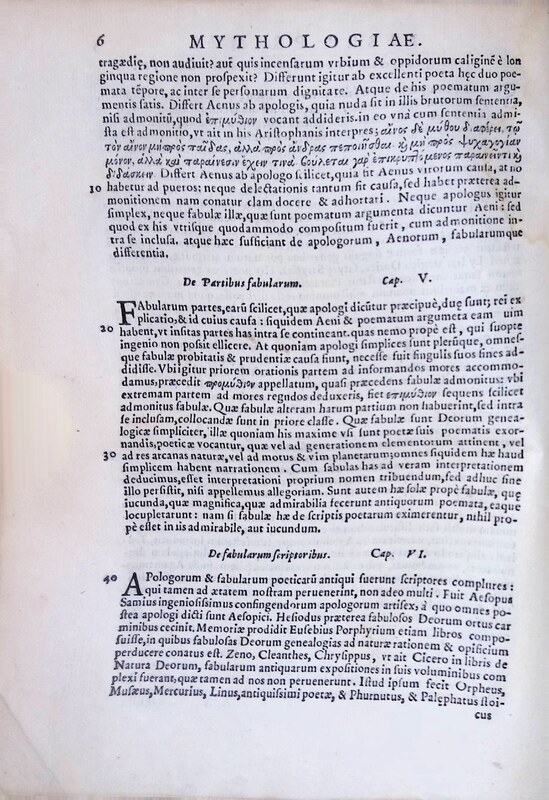 6 MYTHOLOGIAE.
tragædię, non audiuit? aut quis incensarum vrbium & oppidorum caliginē è lon
ginqua regione non prospexit? Differunt igitur ab excellenti poeta hęc duo poe-
mata tēpore, ac inter se personarum dignitate. Atque de his poematum argu-
mentis satis. Differt Aenus ab apologis, quia nuda sit in illis brutorum sententia,
nisi admonitū, quod ἐπιμύθιον vocant addideris. in eo vnà cum sententia admi-
sta est admonitio, vt ait in his Aristophanis interpres; αἶνος δὲ μύθου διαφέρει, τῷ
τὸν αἶνον μὴ πρὸς παῖδας, ἀλλὰ πρὸς ἄνδρας πεποιῆσθαι. ϗ μὴ πρὸς ψυχαγωγίαν
μόνον, ἀλλὰ καὶ παραίνεσιν ἔχειν τινά. βούλεται γὰρ ἐπικρυπτόμενος παραινεῖν τι ϗ
διδάσκειν. Differt Aenus ab apologo scilicet, quia sit Aenus virorum causa, at ιιο
10 habetur ad pueros: neque delectationis tantum sit causa, sed habet præterea ad-
monitionem nam conatur clam docere & adhortari. Neque apologus igitur
simplex, neque fabulæ illæ, quæ sunt poematum argumenta dicuntur Aeni: sed
quod ex his vtrisque quodammodo compositum fuerit, cum admonitione in-
tra se inclusa. atque hæc sufficiant de apologorum, Aenorum, fabularumque
differentia.
De Partibus fabularum. Cap. V.
FAbularum partes, earū scilicet, quæ apologi dicūtur præcipuè, duę sunt; rei ex
plicatio, & id cuius causa: siquidem Aeni & poematum argumeta eam uim
20 habent, vt insitas partes has intra se contineant. quas nemo propè est, qui suopte
ingenio non possit ellicere. At quoniam apologi simplices sunt plerūque, omnes-
que fabulæ probitatis & prudentiæ causa fiunt, necesse fuit singulis suos fines ad-
didisse. Vbi igitur priorem orationis partem ad informandos mores accommo-
damus; præcedit προμύθιον appellatum, quasi præcedens fabulæ admonitus: vbi
extremam partem ad mores regndos deduxeris, fiet ἐπιμύθιον sequens scilicet
admonitus fabulæ. Quæ fabulæ alteram harum partium non habuerint, sed intra
se inclusam, collocandæ sunt in priore classe. Quæ fabulæ sunt Deorum genea
logicæ simpliciter, illæ quoniam his maxime vsi sunt poetæ suis poematis exor-
nandis, poeticæ vocantur, quæ vel ad generationem elementorum attinent, vel
30 ad res arcanas naturæ, vel ad motus & vim planetarum; omnes siquidem hæ haud
simplicem habent narrationem. Cum fabulas has ad veram interpretationem
deducimus, esset interpretationi proprium nomen tribuendum, sed adhuc sine
illo persistit, nisi appellemus allegoriam. Sunt autem hæ solæ propè fabulæ, quę
iucunda, quæ magnifica, quæ admirabilia fecerunt antiquorum poemata, eaque
locupletarunt: nam si fabulæ hæ de scriptis poetarum eximerentur, nihil pro-
pè esset in iis admirabile, aut iucundum.
De fabularum scriptoribus. Cap. VI.
40 APologorum & fabularum poeticarū antiqui fuerunt scriptores complures:
qui tamen ad ætatem nostram peruenerint, non adeo multi. Fuit Aesopus
Samius ingeniosissimus confingendorum apologorum artifex, à quo omnes po-
stea apologi dicti sunt Aesopici. Hesiodus præterea fabulosos Deorum ortus car
minibus cecinit. Memoriæ prodidit Eusebius Porphyrium etiam libros compo-
suisse, in quibus fabulosas Deorum genealogias ad naturæ rationem & opificium
perducere conatus est. Zeno, Cleanthes, Chrysippus, vt ait Cicero in libris de
Natura Deorum, fabularum antiquarum expositiones in suis voluminibus com
plexi fuerant, quæ tamen ad nos non peruenerunt. Istud ipsum fecit Orpheus,
Musæus, Mercurius, Linus, antiquissimi poetæ, & Phurnutus, & Palephatus stoi-
cus